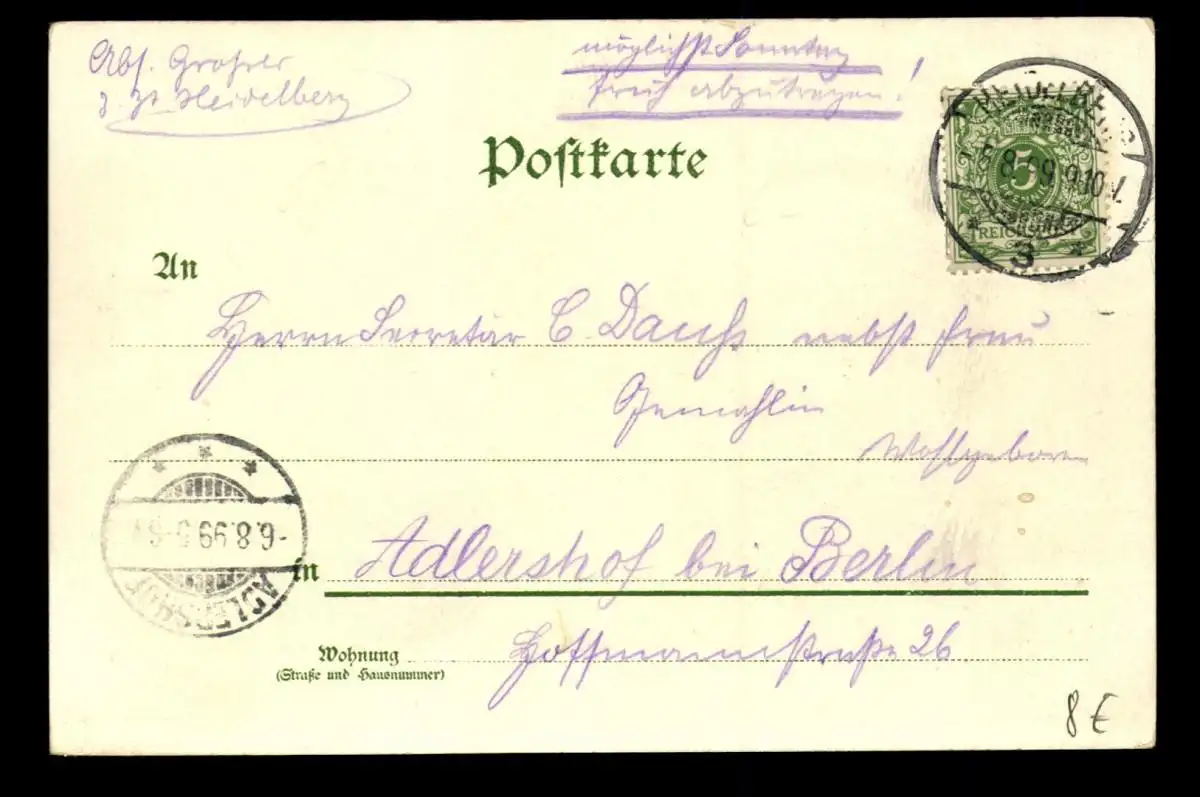 Abs. Grohrer
z. Zt. Heidelberg
möglichst Sonntag
früh abzutragen!
Postkarte
HEIDELBERG
5.8.99.9-10 V
3
5
PFENNIG
REICHSPOST
An
Herrn Secretär C. Dauhs nebst Frau
Gemahlin
Wohlgeboren
-6.8.99 5-6
ADLERSHOF
in Adlershof bei Berlin
Wohnung Hoffmannstraße 26
(Straße und Hausnummer)
8 €